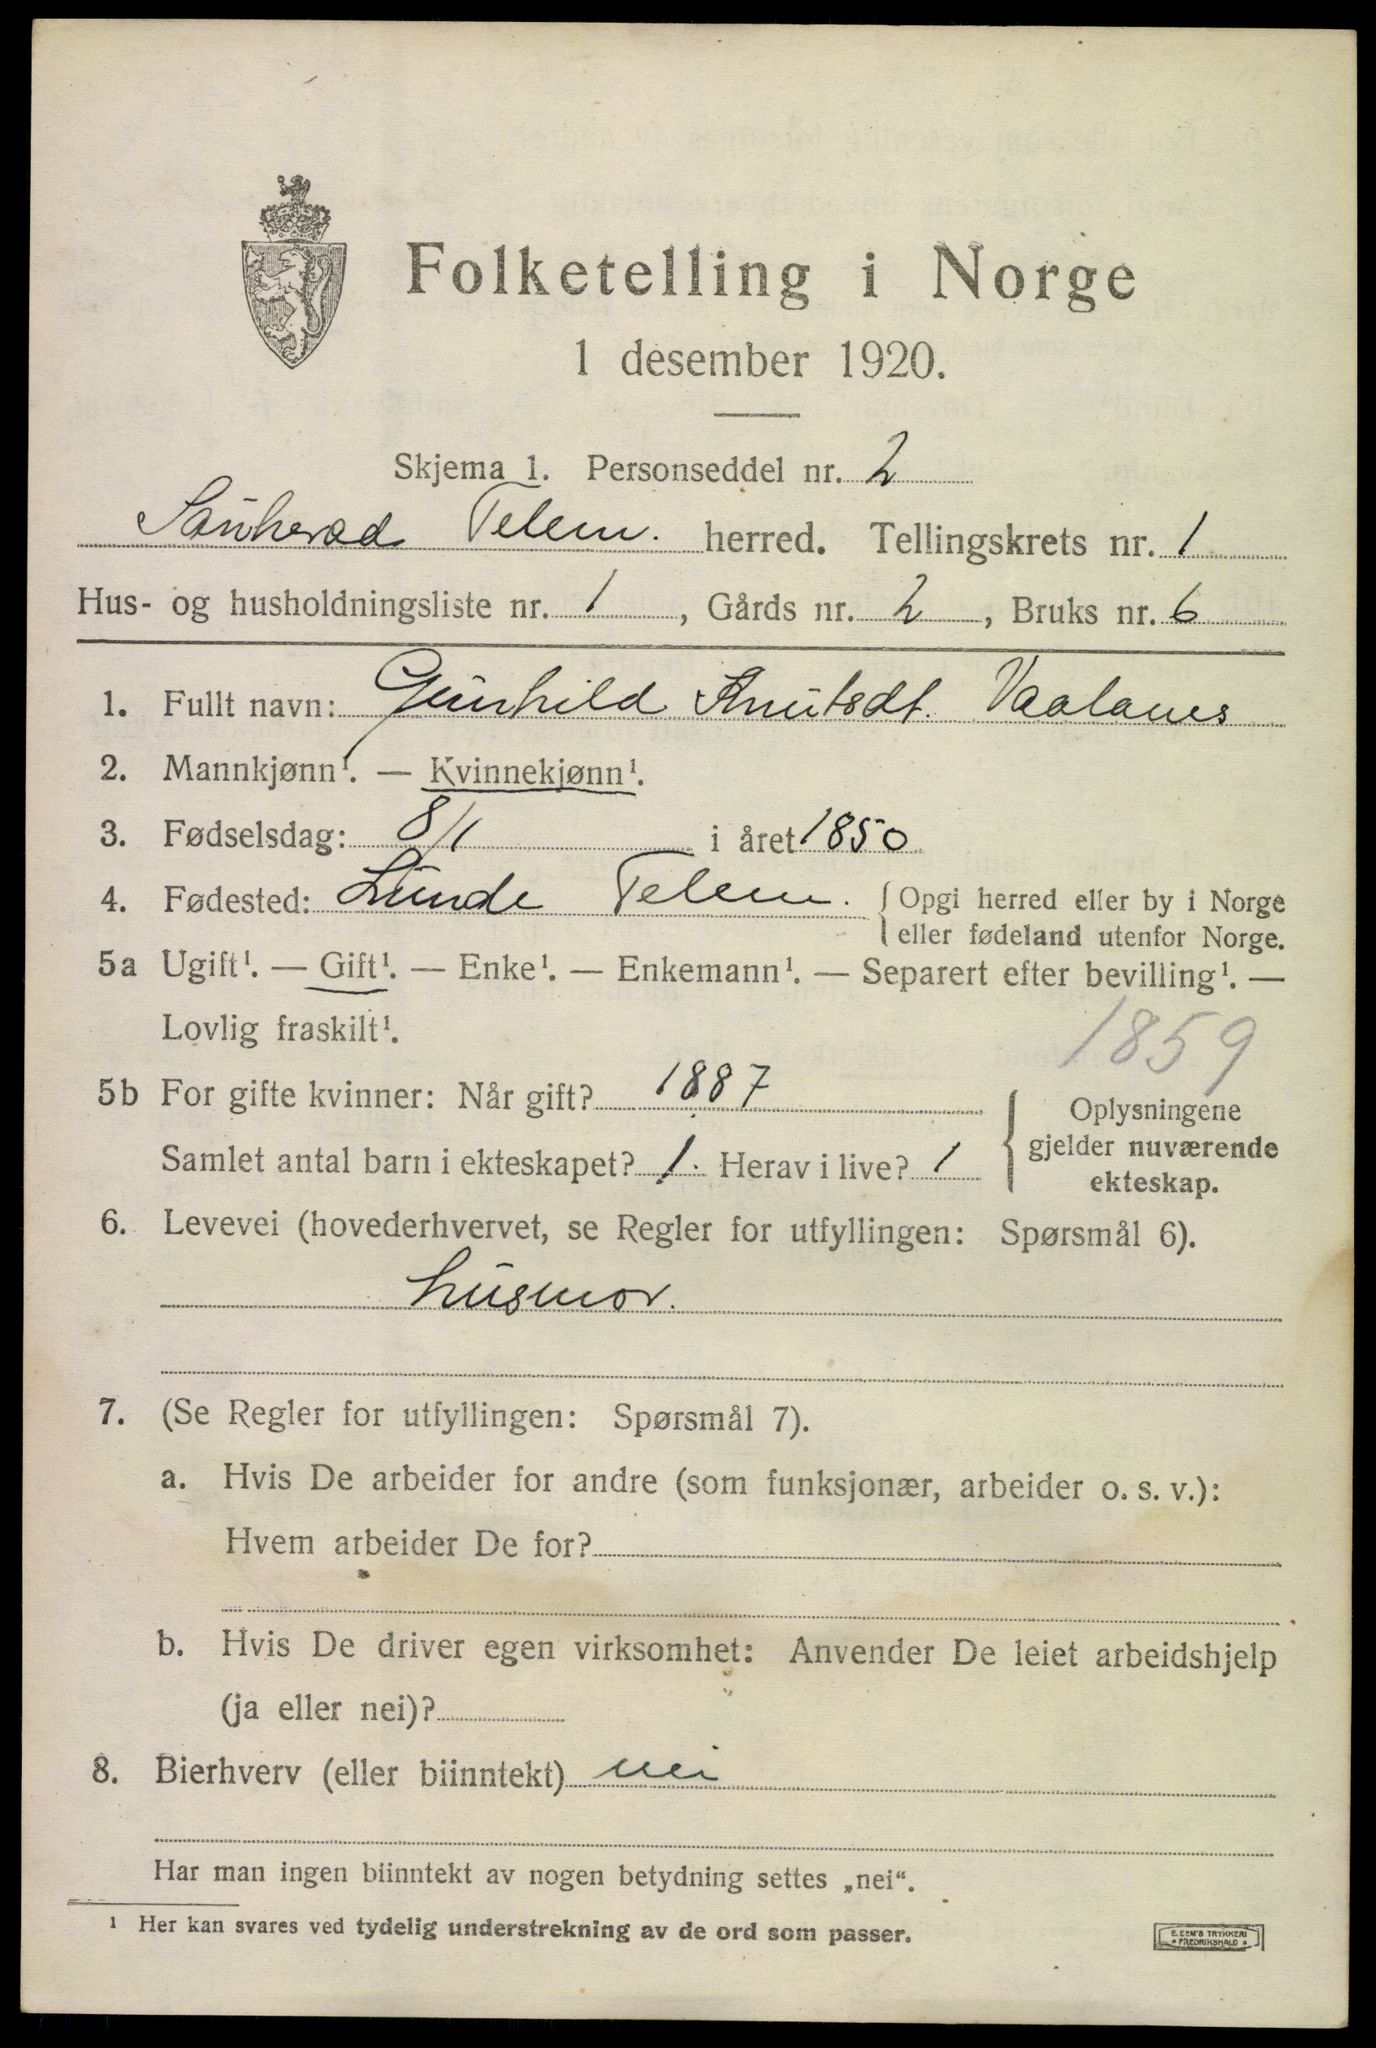 Folketelling i Norge
1 desember 1920.
Skjema 1. Personseddel nr. 2
Sauherad Telem. herred. Tellingskrets nr. 1
Hus- og husholdningsliste nr. 1, Gårds nr. 2, Bruks nr. 6
1. Fullt navn: Gunhild Knutsdt. Vaalanes
2. Mannkjønn¹. — Kvinnekjønn¹.
3. Fødselsdag: 8/1 i året 1850
4. Fødested: Lunde Telem. { Opgi herred eller by i Norge
eller fødeland utenfor Norge.
5a Ugift¹. — Gift¹. — Enke¹. — Enkemann¹. — Separert efter bevilling¹. —
Lovlig fraskilt¹.
1859
5b For gifte kvinner: Når gift? 1887
Samlet antal barn i ekteskapet? 1. Herav i live? 1
{ Oplysningene
gjelder nuværende
ekteskap.
6. Levevei (hovederhvervet, se Regler for utfyllingen: Spørsmål 6).
husmor.
7. (Se Regler for utfyllingen: Spørsmål 7).
a. Hvis De arbeider for andre (som funksjonær, arbeider o. s. v.):
Hvem arbeider De for?
b. Hvis De driver egen virksomhet: Anvender De leiet arbeidshjelp
(ja eller nei)?
8. Bierhverv (eller biinntekt) nei
Har man ingen biinntekt av nogen betydning settes „nei“.
¹ Her kan svares ved tydelig understrekning av de ord som passer.
E. SEM'S TRYKKERI
FREDRIKSHALD